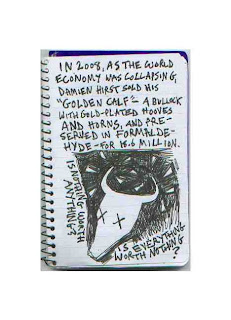 IN 2008, AS THE WORLD
ECONOMY WAS COLLAPSING,
DAMIEN HIRST SOLD HIS
"GOLDEN CALF" - A BULLOCK
WITH GOLD-PLATED HOOVES
AND HORNS, AND PRE-
SERVED IN FORMALDE-
HYDE - FOR 18.6 MILLION.
IS NOTHING WORTH
ANYTHING?
IS EVERYTHING
WORTH NOTHING?